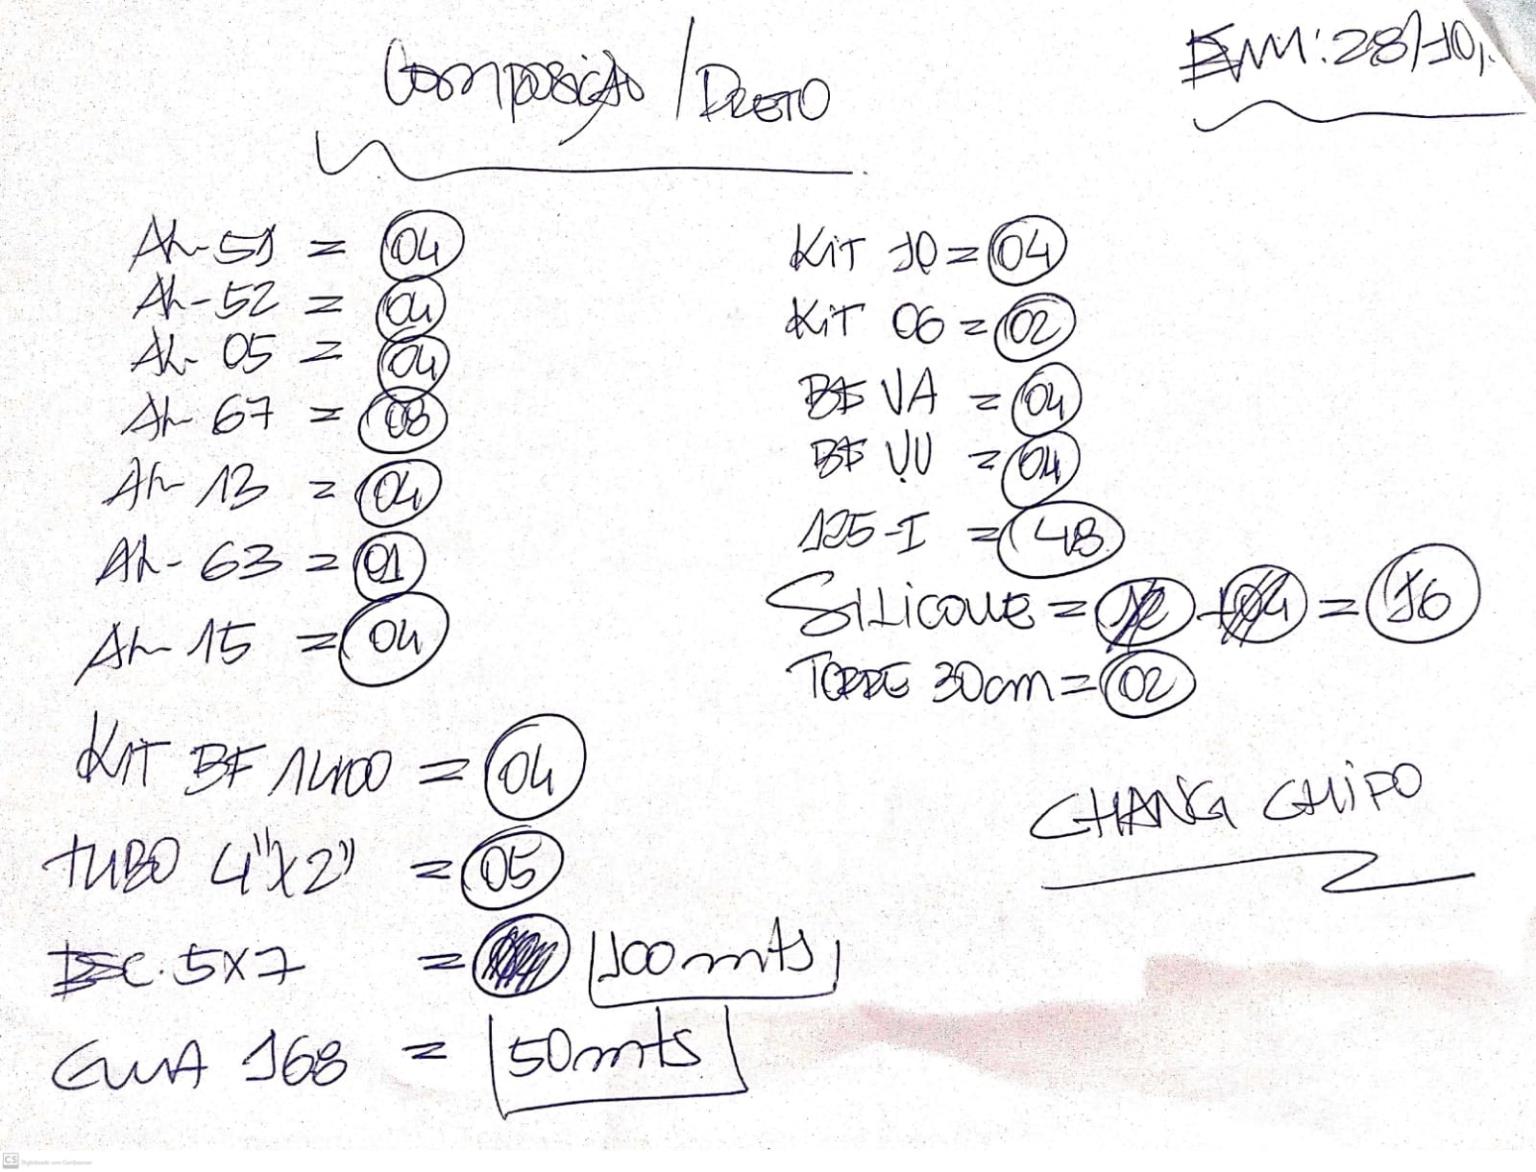 Composição / Preto
Em: 28/10/
AL-51 = 04
AL-52 = 04
AL-05 = 04
AL-67 = 08
AL-13 = 04
AL-63 = 01
AL-15 = 04
KiT BF 1400 = 04
TUBO 4"X2" = 05
ESC. 5X7 = 100mts
GUIA 168 = 50mts
KiT 10 = 04
KiT 06 = 02
BF VA = 04
BF VU = 04
125-I = 48
SiLicoNE = 12 + 04 = 16
TORRE 30cm = 02
CHANG
CS Digitalizado com CamScanner